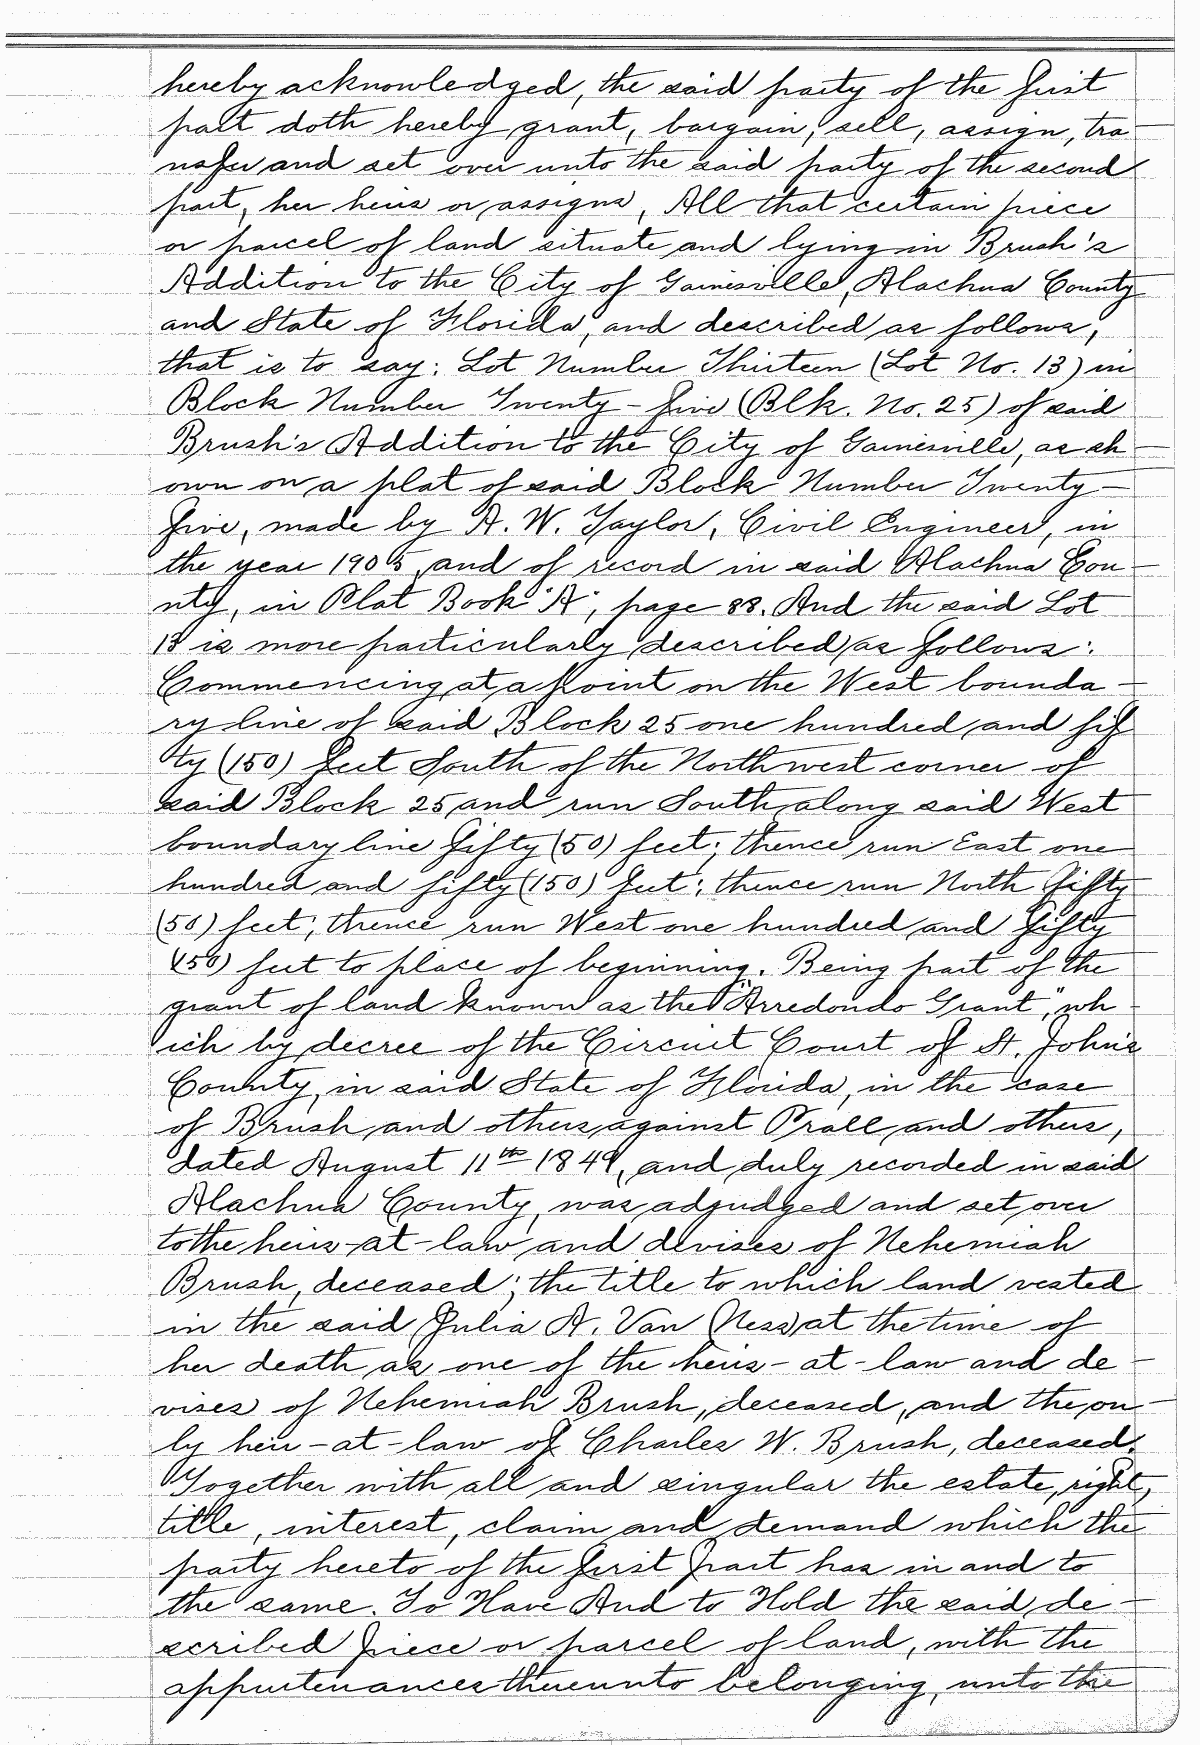 hereby acknowledged, the said party of the first
part doth hereby grant, bargain, sell, assign, tra
nsfer and set over unto the said party of the second
part, her heirs or assigns, All that certain piece
or parcel of land situate and lying in Brush's
Addition to the City of Gainesville, Alachua County
and State of Florida, and described as follows,
that is to say: Lot Number Thirteen (Lot No. 13) in
Block Number Twenty-five (Blk. No. 25) of said
Brush's Addition to the City of Gainesville, as sh-
own on a plat of said Block Number Twenty-
five, made by A. W. Taylor, Civil Engineer, in
the year 1905, and of record in said Alachua Cou-
nty, in Plat Book "A", page 88. And the said Lot
13 is more particularly described as follows:
Commencing at a point on the West bounda-
ry line of said Block 25 one hundred and fif
ty (150) feet South of the Northwest corner of
said Block 25 and run South along said West
boundary line fifty (50) feet; thence run East one
hundred and fifty (150) feet; thence run North fifty
(50) feet; thence run West one hundred and fifty
(150) feet to place of beginning. Being part of the
grant of land known as the "Arredondo Grant," wh-
ich by decree of the Circuit Court of St. John's
County, in said State of Florida, in the case
of Brush and others against Prall and others,
dated August 11th 1849, and duly recorded in said
Alachua County, was adjudged and set over
to the heirs-at-law and devises of Nehemiah
Brush, deceased; the title to which land vested
in the said Julia A. Van Ness at the time of
her death as one of the heirs-at-law and de-
vises of Nehemiah Brush, deceased, and the on-
ly heir-at-law of Charles W. Brush, deceased.
Together with all and singular the estate, right,
title, interest, claim and demand which the
party hereto of the first part has in and to
the same. To Have And to Hold the said de-
scribed piece or parcel of land, with the
appurtenances thereunto belonging, unto the